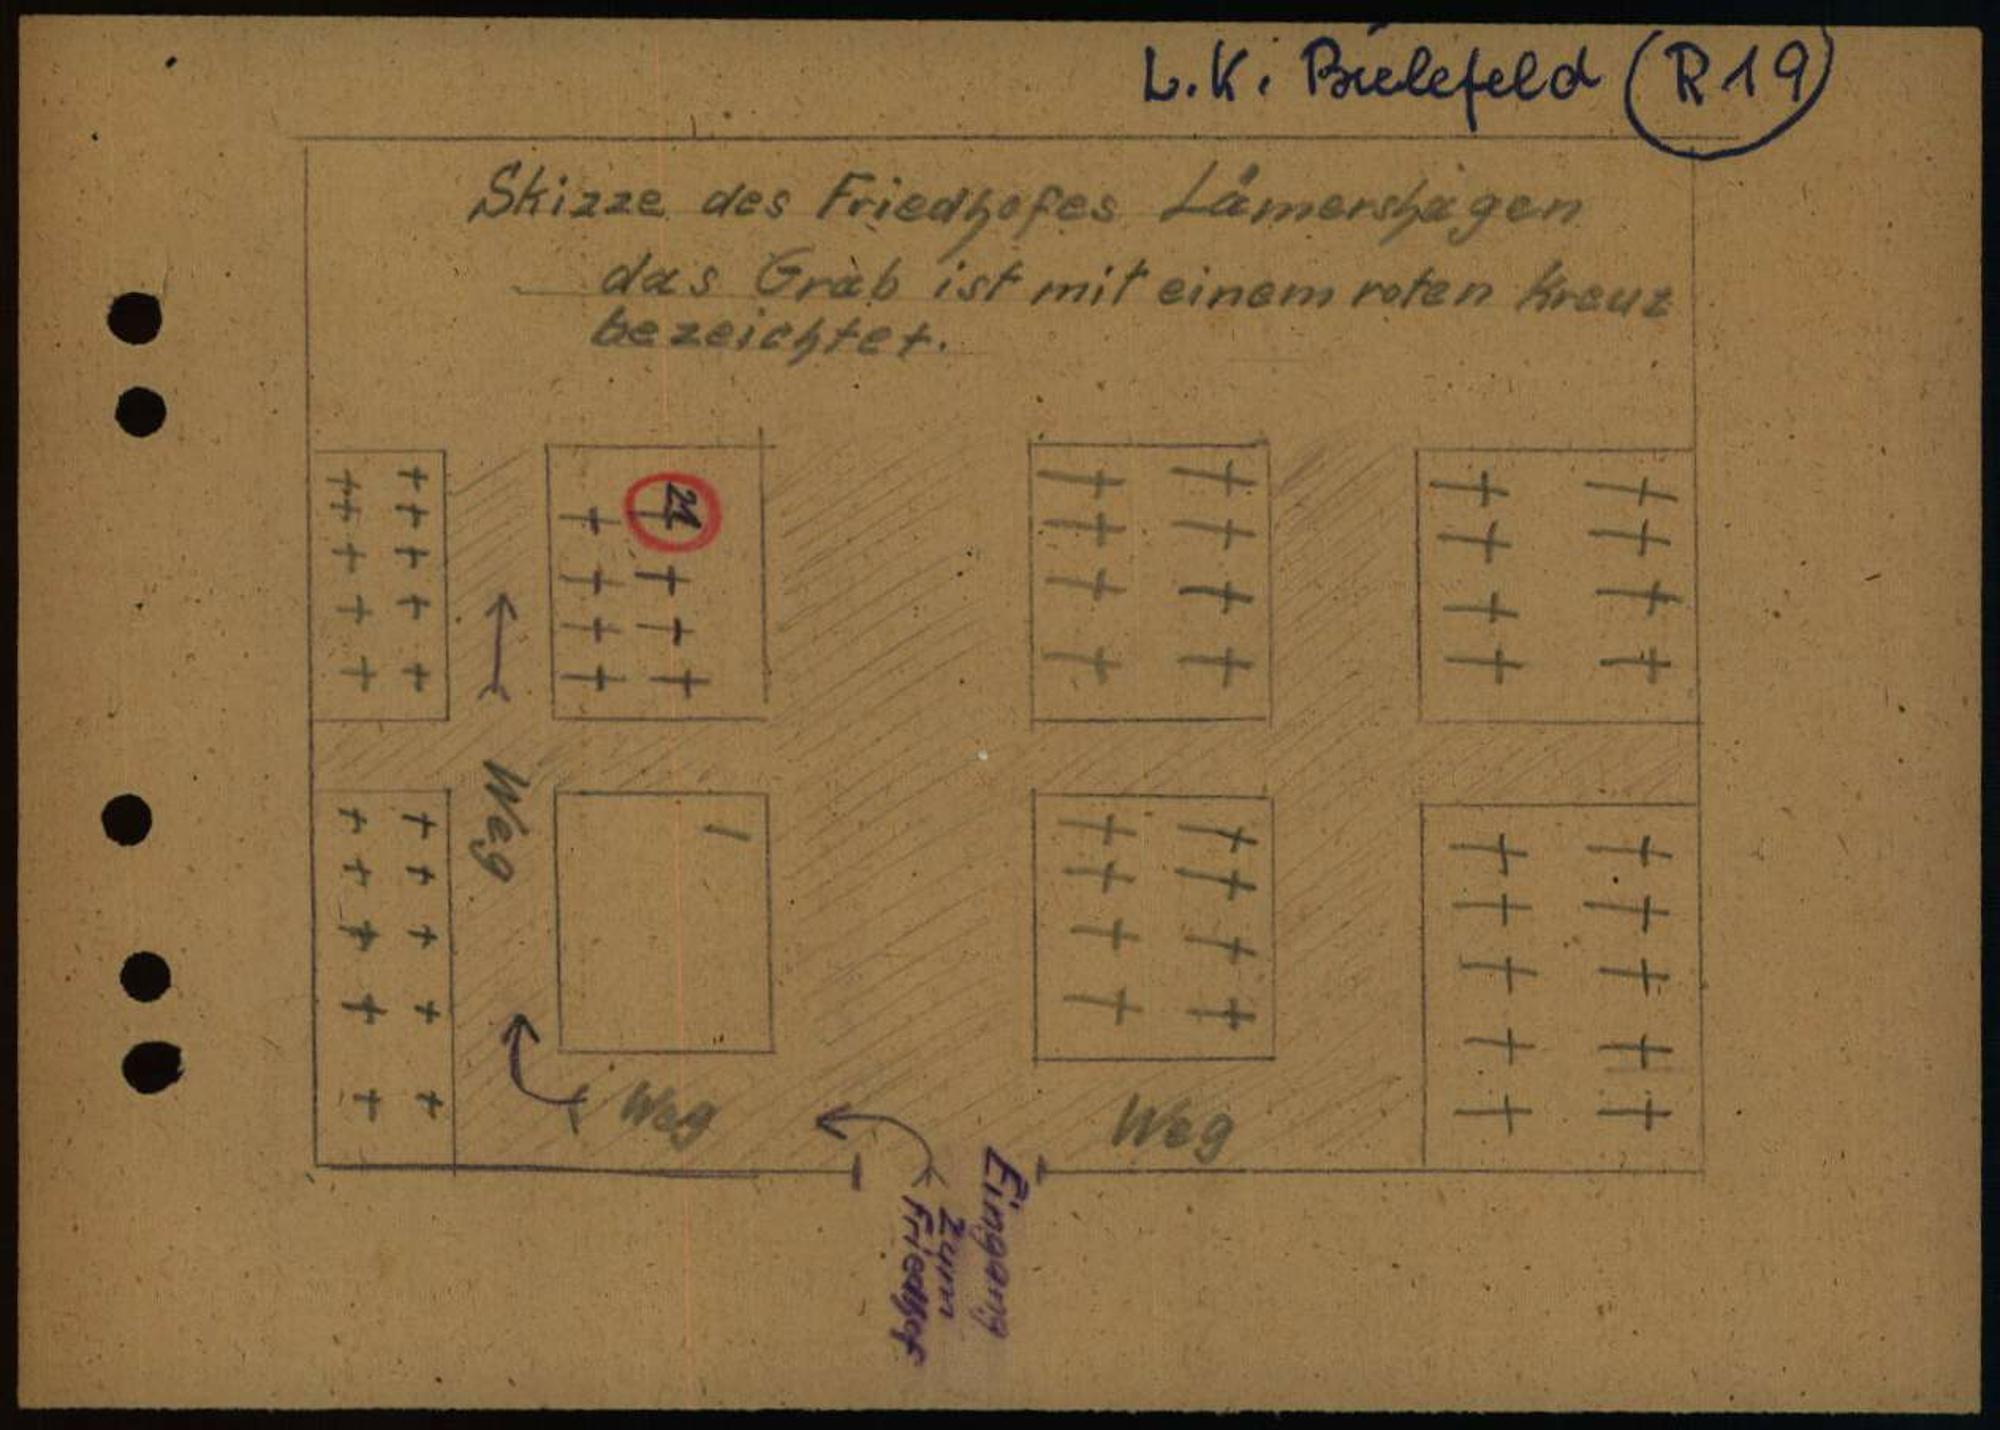 L.K. Bielefeld (R19)
Skizze des Friedhofes Lämershagen
das Grab ist mit einem roten Kreuz
bezeichtet.
21
Weg
Weg
Weg
Eingang
zum
Friedhof